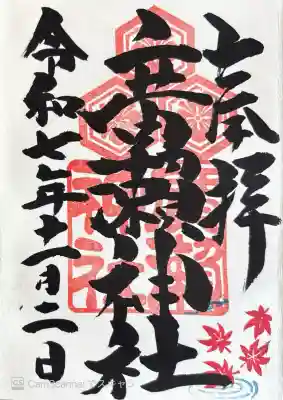 奉拝
高瀬神社
令和七年十一月二日
CS CamScanner でスキャン